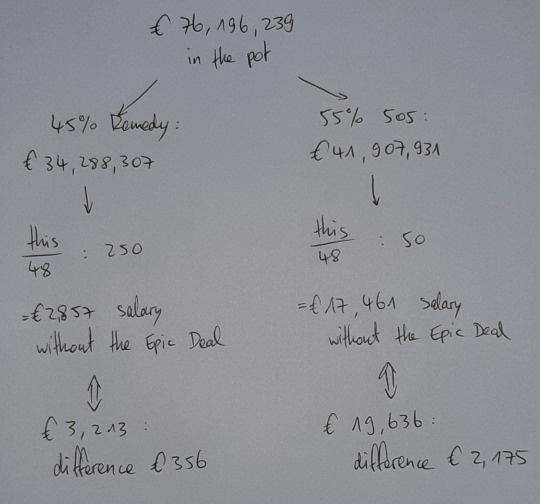 € 76,196,239
in the pot
45% Remedy:
€ 34,288,307
this
48
: 250
=€2857 salary
without the Epic Deal
€ 3,213:
difference €356
55% 505:
€41,907,931
this
48
: 50
=€17,461 salary
without the Epic Deal
€ 19,636:
difference € 2,175